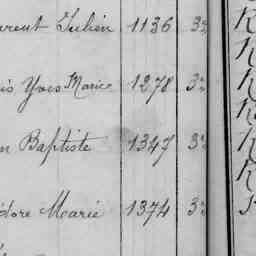 arent Julien 1136 3
is Yves Marie 1278 3
n Baptiste 1347 3
dore Marie 1374 3